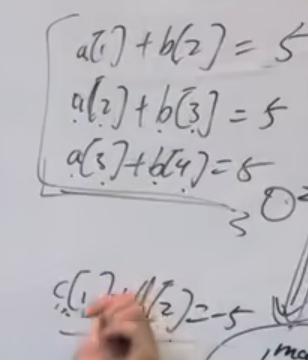 a[1] + b[2] = 5
a[2] + b[3] = 5
a[3] + b[4] = 5
3
c[1] [2] = -5